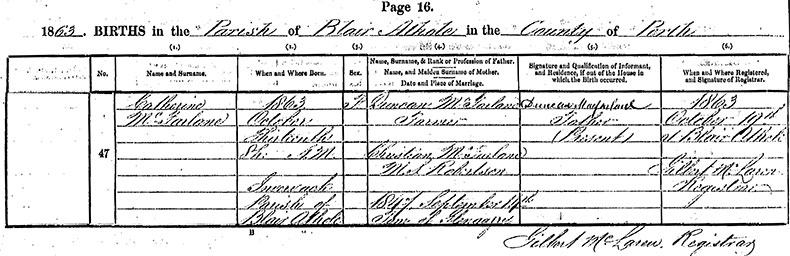 Page 16.
1863. BIRTHS in the Parish of Blair Athole in the County of Perth
(1.) (2.) (3.) (4.) (5.) (6.)
No. Name and Surname. When and Where Born. Sex. Name, Surname, & Rank or Profession of Father. Name, and Maiden Surname of Mother. Date and Place of Marriage. Signature and Qualification of Informant, and Residence, if out of the House in which the Birth occurred. When and Where Registered, and Signature of Registrar.
47
Catherine
McFarlane
1863
October
A.M.
Parish of
Blair Athole
F
Duncan McFarlane
Farmer
Christian McFarlane
M.S. Robertson
1847 September 14th
Duncan Macfarlane
Father
(Present)
1863
October 19th
at Blair Athole
Gilbert McLaren
Registrar
B
Gilbert McLaren, Registrar